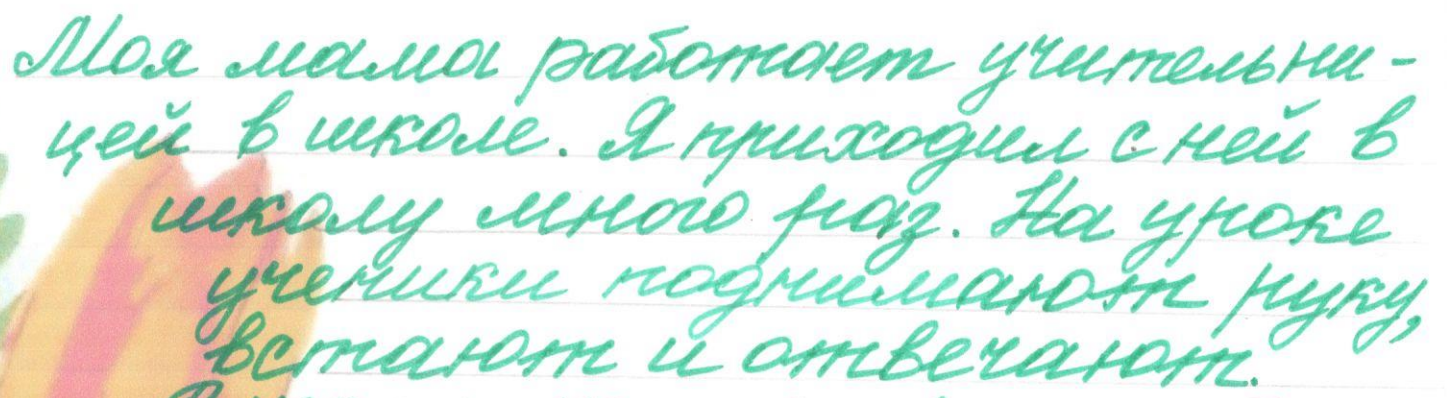 Моя мама работает учительни-
цей в школе. Я приходил с ней в
школу много раз. На уроке
ученики поднимают руку,
встают и отвечают.